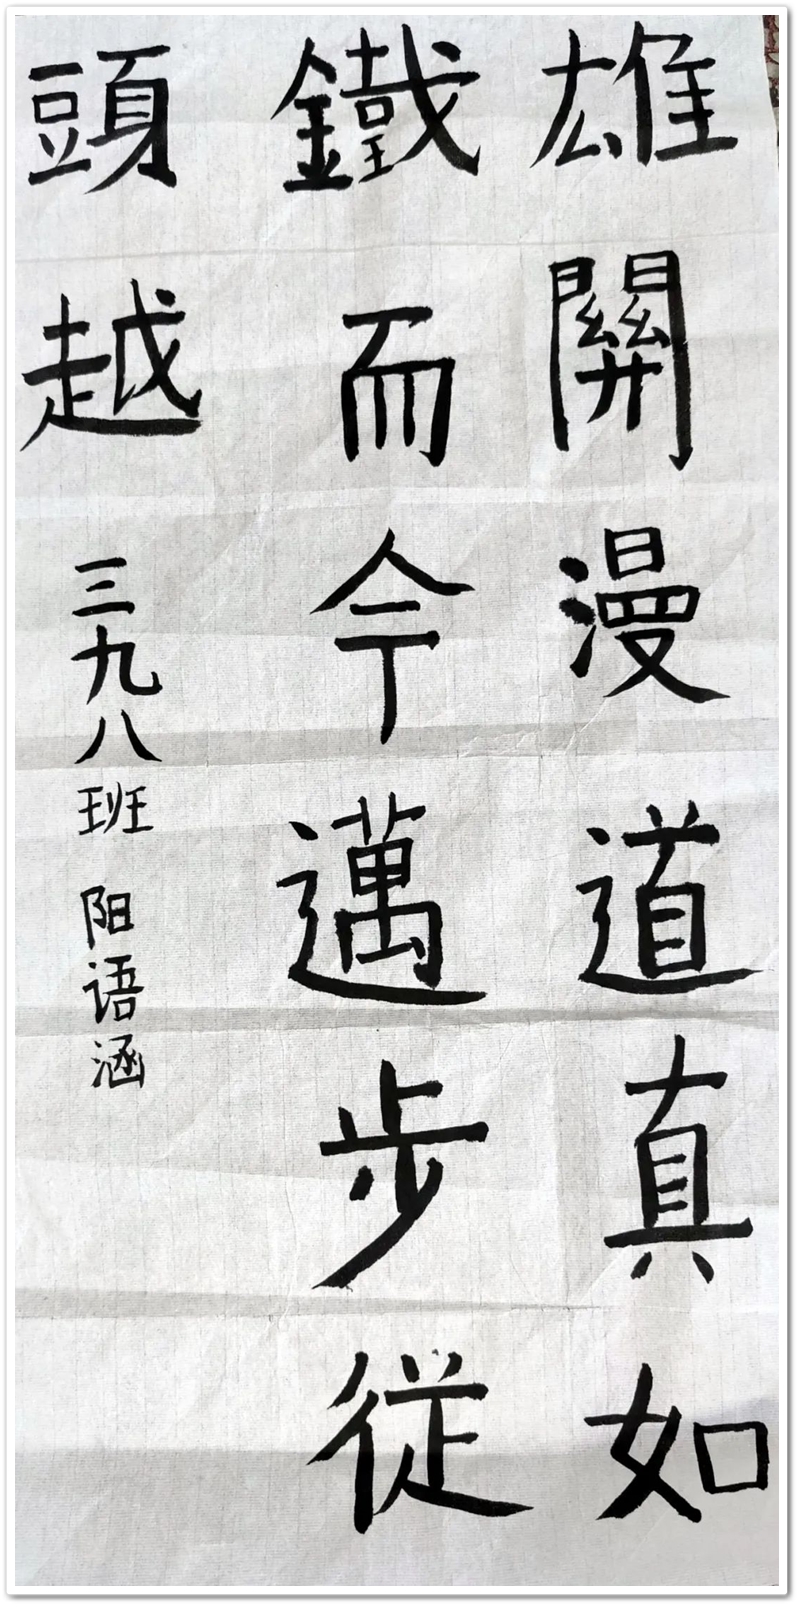 雄關漫道真如
鐵而今邁步従
頭越
三九八班 阳语涵